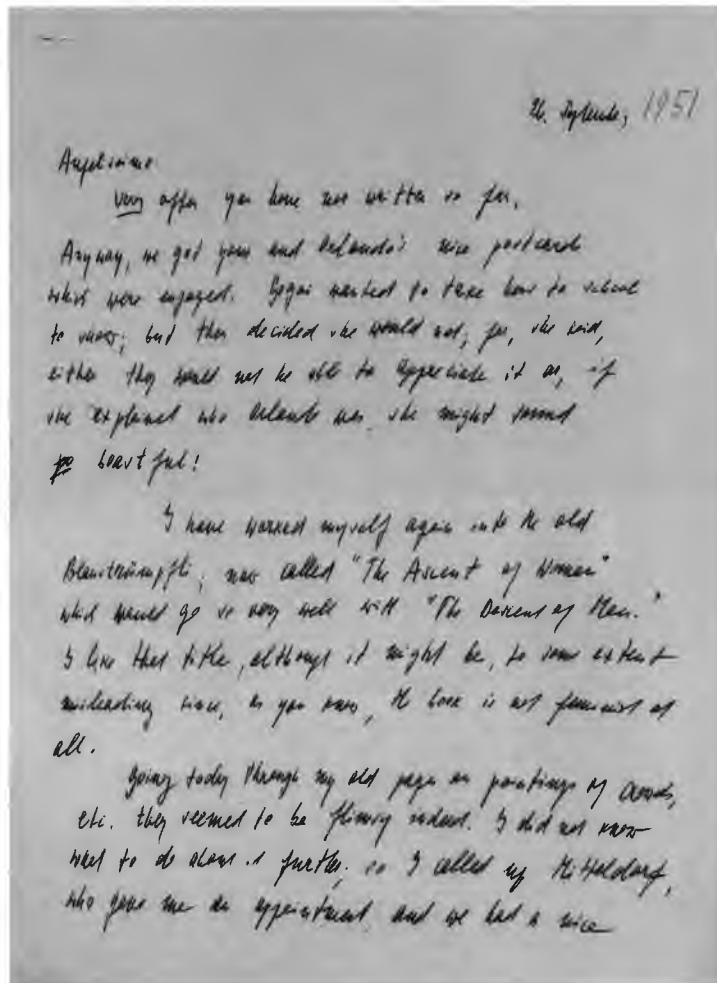 26. September, 1951
you have not written so far.
Anyway, we got yours and Orlando's nice postcards
which were enjoyed. wanted to take hers to school
to show; but then decided she would not, for, she said,
either they would not be able to appreciate it or, if
she explained who Orlando was, she might sound
so boastful!
I have worked myself again into the old
Blaustrümpfli, now called "The Ascent of Woman"
which would go so very well with "The Descent of Man."
I like that title, although it might be, to some extent
misleading since, as you know, the book is not feminist at
all.
Going today through my old pages on paintings of crowds,
etc. they seemed to be flimsy indeed. I did not know
what to do about it further, so I called up Mitteldorf,
who gave me an appointment, and we had a nice